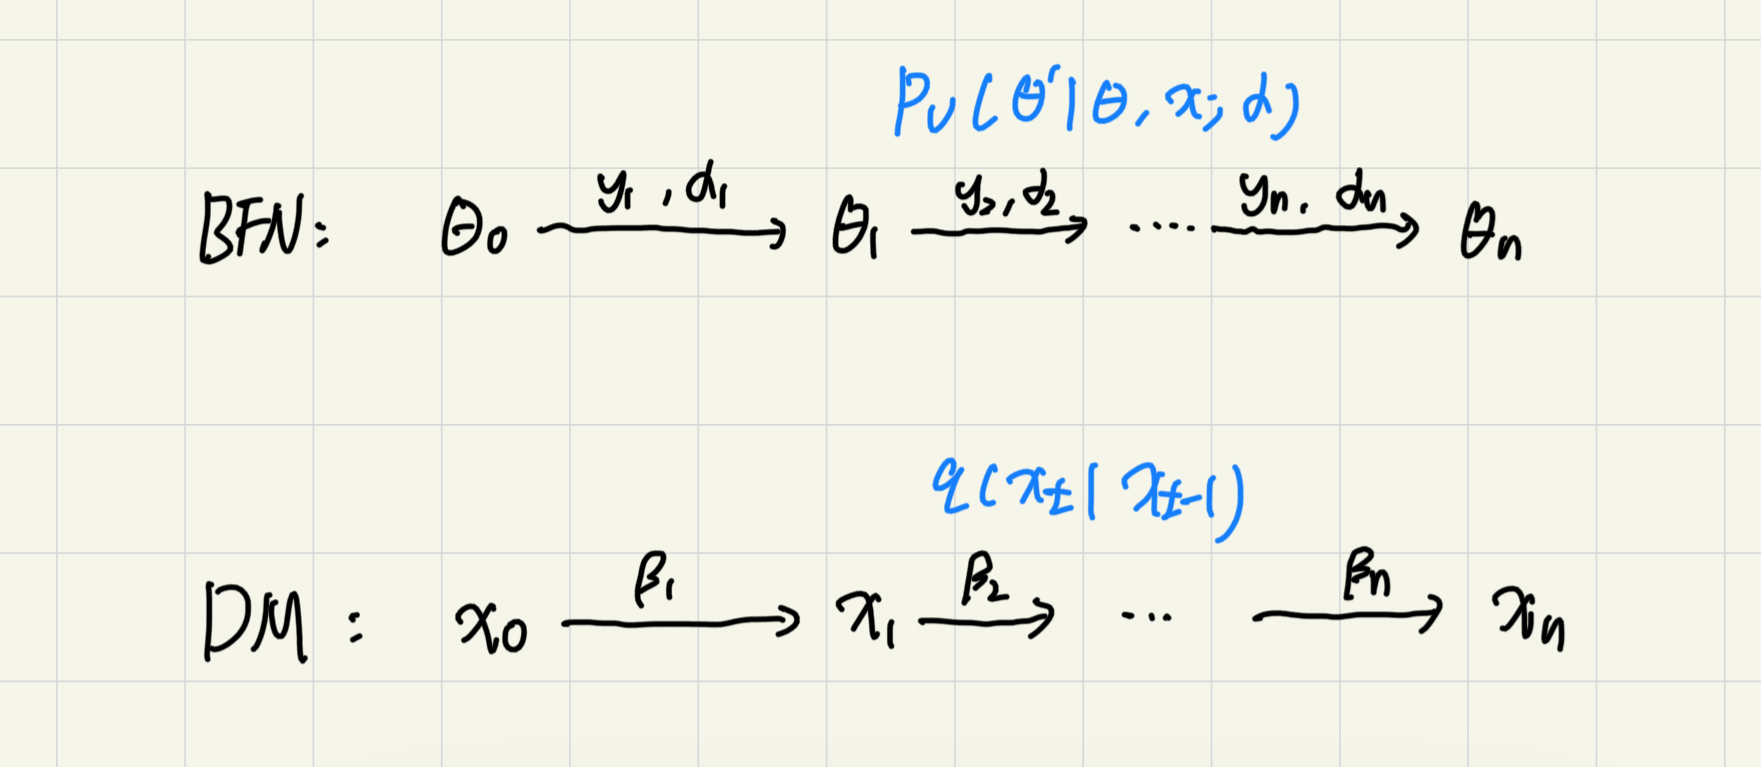 P_U(θ'|θ, x; α)
BFN: θ_0 —y_1, α_1→ θ_1 —y_2, α_2→ ····· —y_n, α_n→ θ_n
q(x_t | x_{t-1})
DM: x_0 —β_1→ x_1 —β_2→ ··· —β_n→ x_n